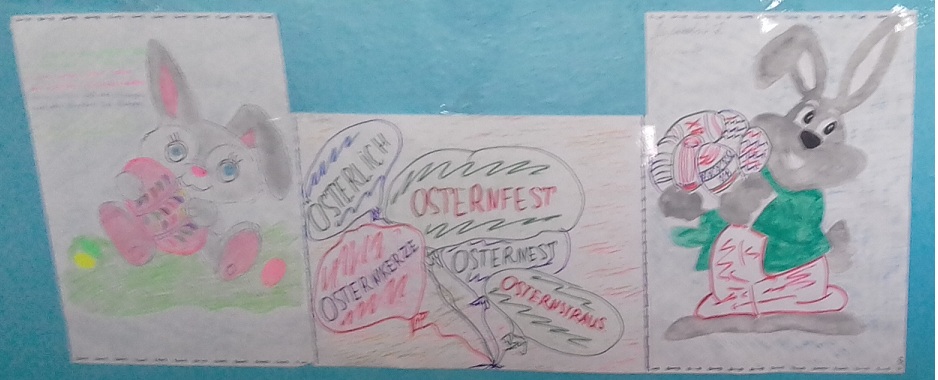 ÖSTERLICH
OSTERNFEST
OSTERNKERZE
OSTERNEST
OSTERNSTRAUS